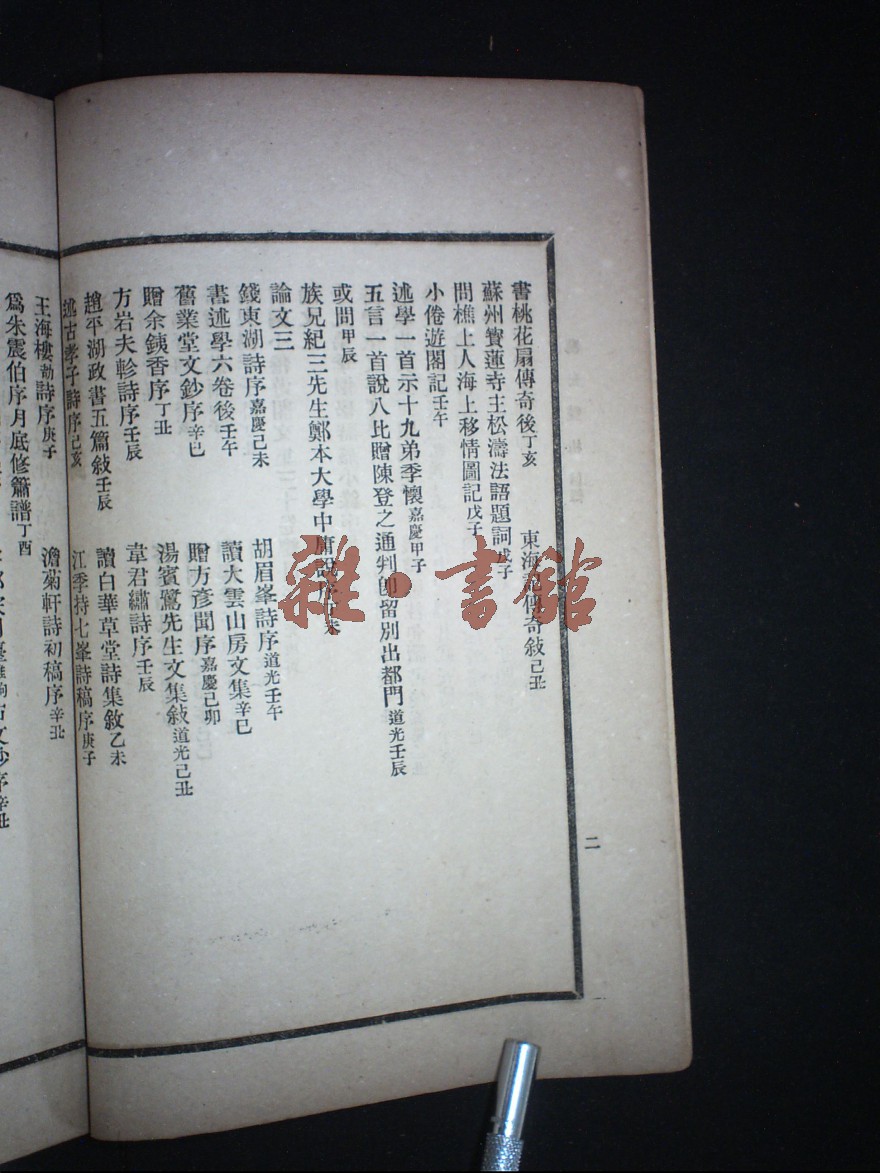 書桃花扇傳奇後丁亥 東海 傳奇敍己丑
蘇州寶蓮寺主松濤法語題詞戊子
問樵上人海上移情圖記戊子
小倦遊閣記壬午
述學一首示十九弟季懷嘉慶甲子
五言一首說八比贈陳登之通判卽留別出都門道光壬辰
或問甲辰
族兄紀三先生鄭本大學中庸說序 未
論文三
錢東湖詩序嘉慶己未 胡眉峯詩序道光壬午
書述學六卷後壬午 讀大雲山房文集辛巳
舊業堂文鈔序辛巳 贈方彥聞序嘉慶己卯
贈余鋏香序丁丑 湯賓鷺先生文集敍道光己丑
方岩夫軫詩序壬辰 韋君繡詩序壬辰
趙平湖政書五篇敍壬辰 讀白華草堂詩集敘乙未
述古孝子詩序己亥 江季持七峯詩稿序庚子
王海樓勃詩序庚子 澹菊軒詩初稿序辛丑
爲朱震伯序月底修簫譜丁酉
古文鈔序辛丑
二
雜·書館